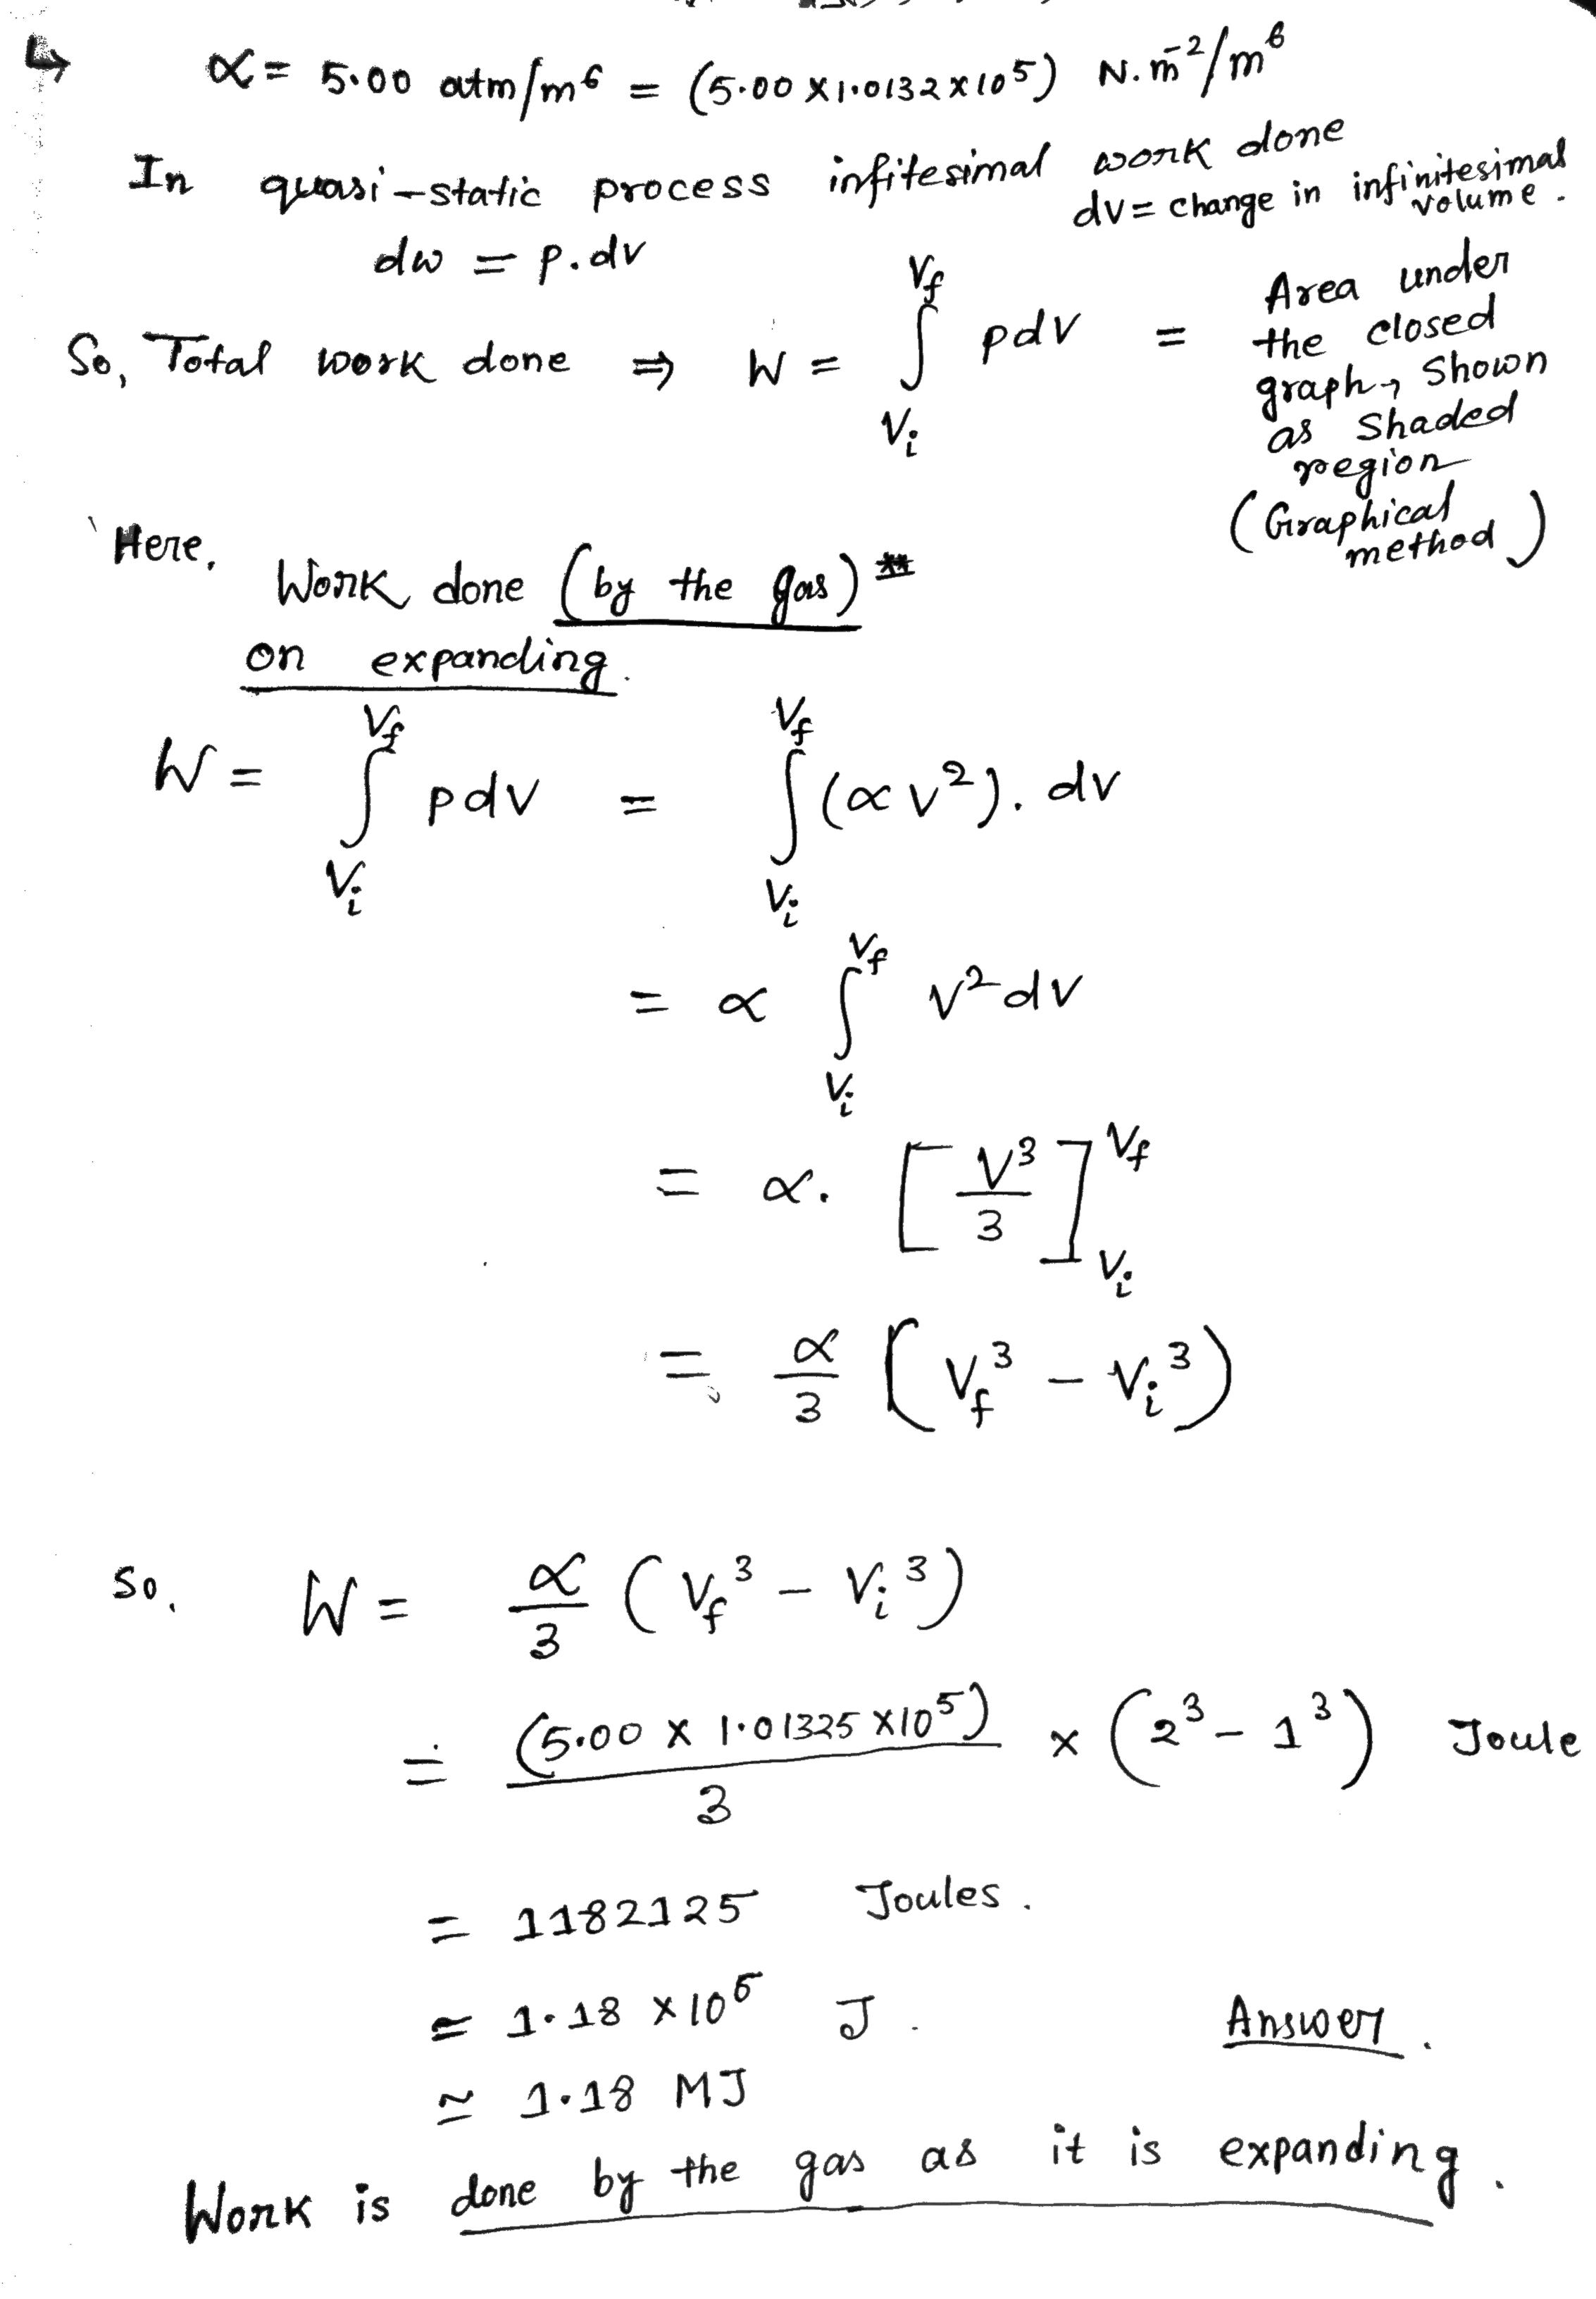 ↳ α = 5.00 atm/m⁶ = (5.00 × 1.0132 × 10⁵) N.m⁻²/m⁶
In quasi-static process infitesimal work done
dV = change in infinitesimal volume.
dw = p.dv
So, Total work done ⇒ W = ∫_{Vi}^{Vf} pdV = Area under
the closed
graph, shown
as shaded
region
(Graphical
method)
Here, Work done (by the gas) **
on expanding.
W = ∫_{Vi}^{Vf} pdV = ∫_{Vi}^{Vf} (αV²). dV
= α ∫_{Vi}^{Vf} V² dV
= α. [V³/3]_{Vi}^{Vf}
= α/3 (Vf³ − Vi³)
So, W = α/3 (Vf³ − Vi³)
= (5.00 × 1.01325 × 10⁵)/3 × (2³ − 1³) Joule
= 1182125 Joules.
= 1.18 × 10⁶ J. Answer.
≃ 1.18 MJ
Work is done by the gas as it is expanding.